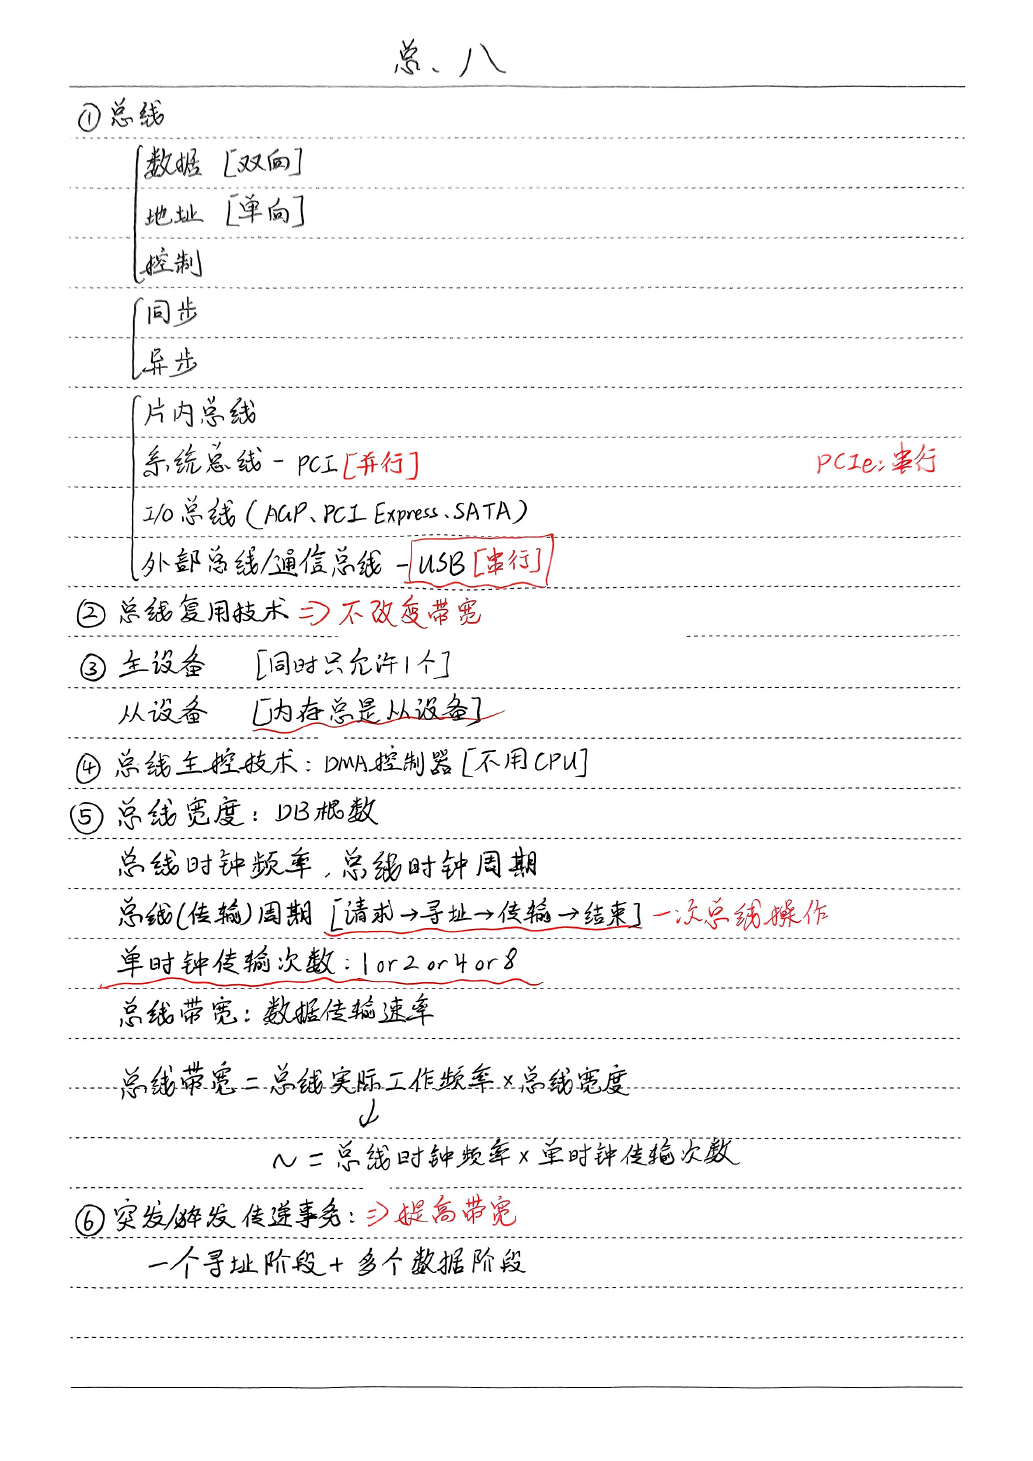 总、八
① 总线
数据 [双向]
地址 [单向]
控制
同步
异步
片内总线
系统总线 - PCI [并行] PCIe: 串行
I/O 总线 (AGP、PCI Express、SATA)
外部总线/通信总线 - USB [串行]
② 总线复用技术 => 不改变带宽
③ 主设备 [同时只允许1个]
从设备 [内存总是从设备]
④ 总线主控技术: DMA控制器 [不用CPU]
⑤ 总线宽度: DB根数
总线时钟频率, 总线时钟周期
总线(传输)周期 [请求→寻址→传输→结束] 一次总线操作
单时钟传输次数: 1 or 2 or 4 or 8
总线带宽: 数据传输速率
总线带宽 = 总线实际工作频率 × 总线宽度
↓
~ = 总线时钟频率 × 单时钟传输次数
⑥ 突发/猝发 传递事务: => 提高带宽
一个寻址阶段 + 多个数据阶段